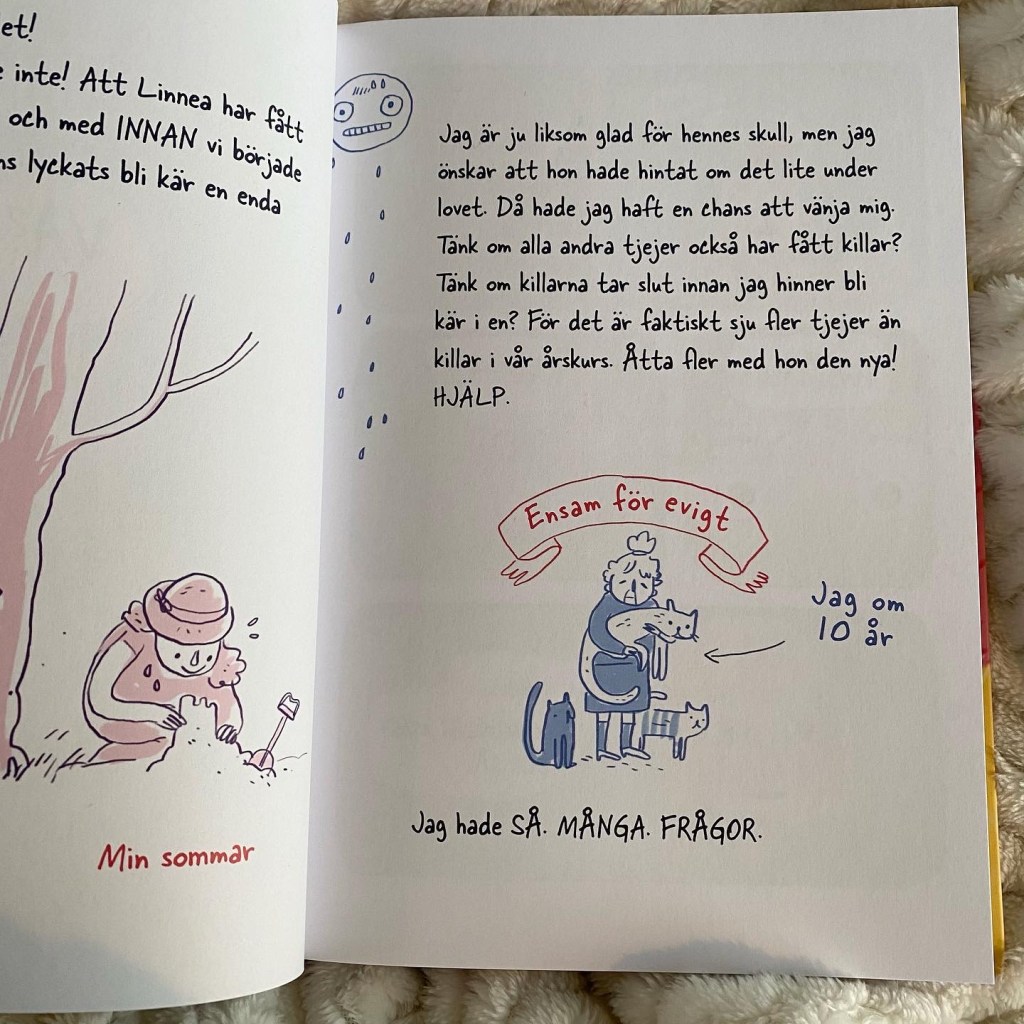 et!
inte! Att Linnea har fått
och med INNAN vi började
lyckats bli kär en enda
Min sommar
Jag är ju liksom glad för hennes skull, men jag
önskar att hon hade hintat om det lite under
lovet. Då hade jag haft en chans att vänja mig.
Tänk om alla andra tjejer också har fått killar?
Tänk om killarna tar slut innan jag hinner bli
kär i en? För det är faktiskt sju fler tjejer än
killar i vår årskurs. Åtta fler med hon den nya!
HJÄLP.
Ensam för evigt
Jag om
10 år
Jag hade SÅ. MÅNGA. FRÅGOR.